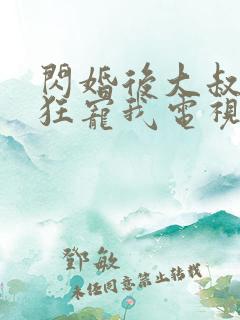 閃婚後大叔
狂寵我電視
鄧敏
未經同意禁止轉載